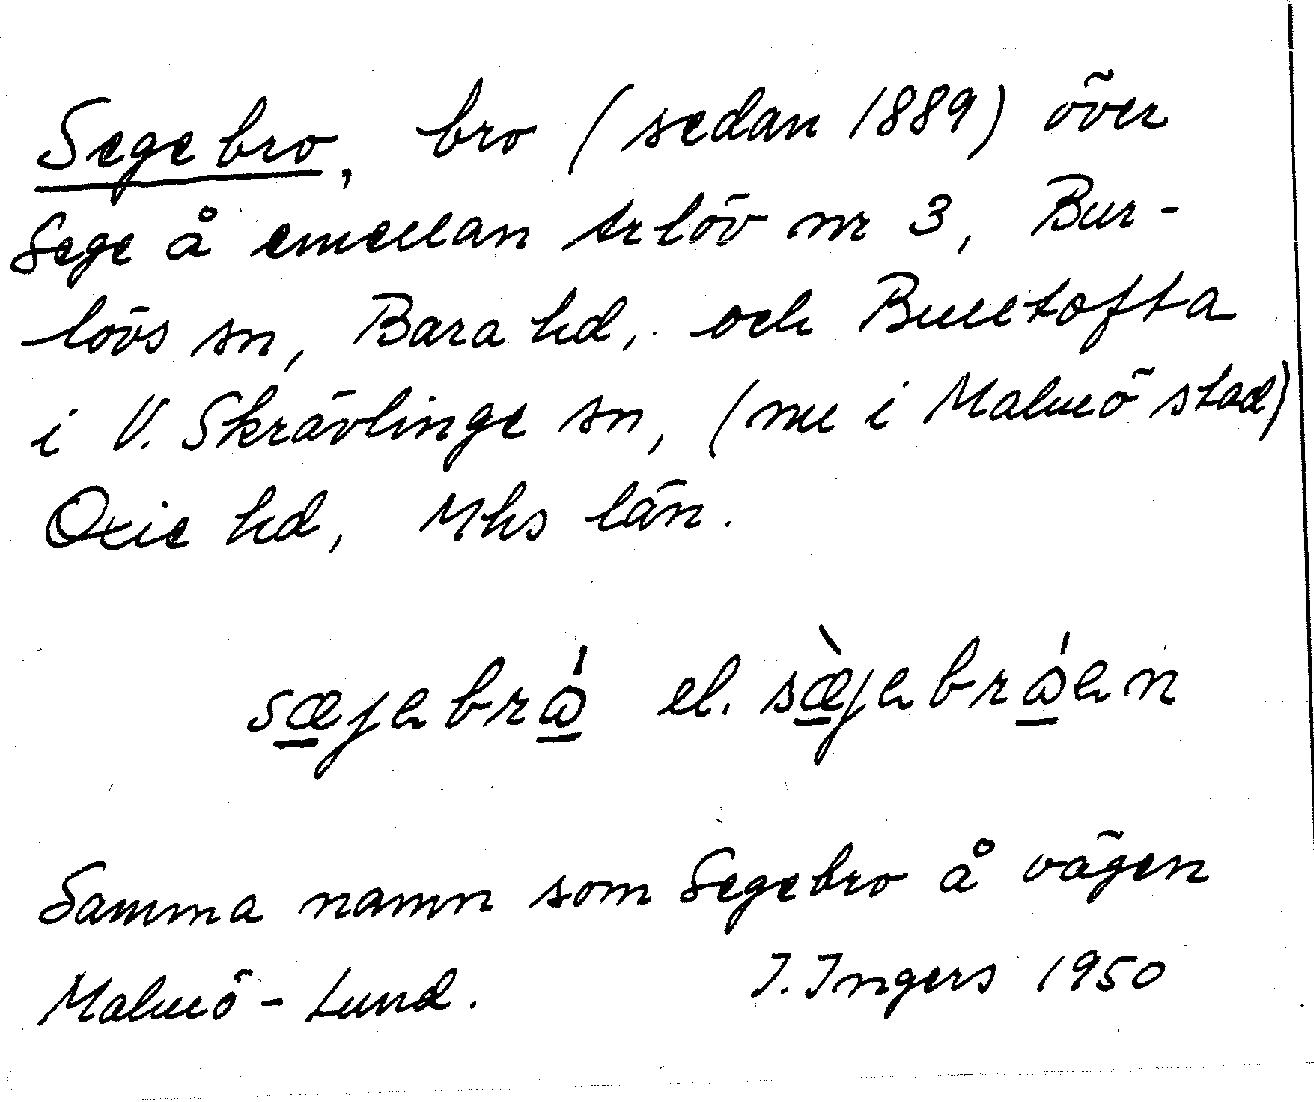 Segebro, bro (sedan 1889) över
Sege å emellan Arlöv nr 3, Bur-
lövs sn, Bara hd, och Bulltofta
i V. Skrävlinge sn, (nu i Malmö stad)
Oxie hd, Mhs län.
sæjebró el. sæ̀jebróen
Samma namn som Segebro å vägen
Malmö - Lund. I. Ingers 1950